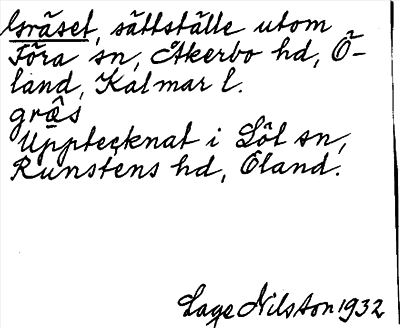 Gräset, sättställe utom
Föra sn, Åkerbo hd, Ö-
land, Kalmar l.
græ̂s
Upptecknat i Löt sn,
Runstens hd, Öland.
Lage Nilsson 1932